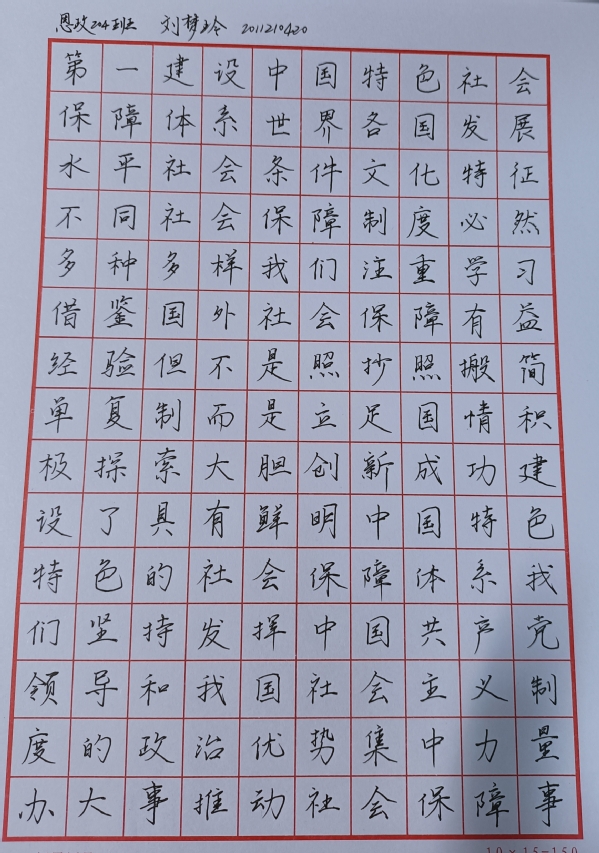 思政204班 刘梦玲 2011210420
第一建设中国特色社会
保障体系世界各国发展
水平社会条件文化特征
不同社会保障制度必然
多种多样我们注重学习
借鉴国外社会保障有益
经验但不是照抄照搬简
单复制而是立足国情积
极探索大胆创新成功建
设了具有鲜明中国特色
特色的社会保障体系我
们坚持发挥中国共产党
领导和我国社会主义制
度的政治优势集中力量
办大事推动社会保障事
10×15=150